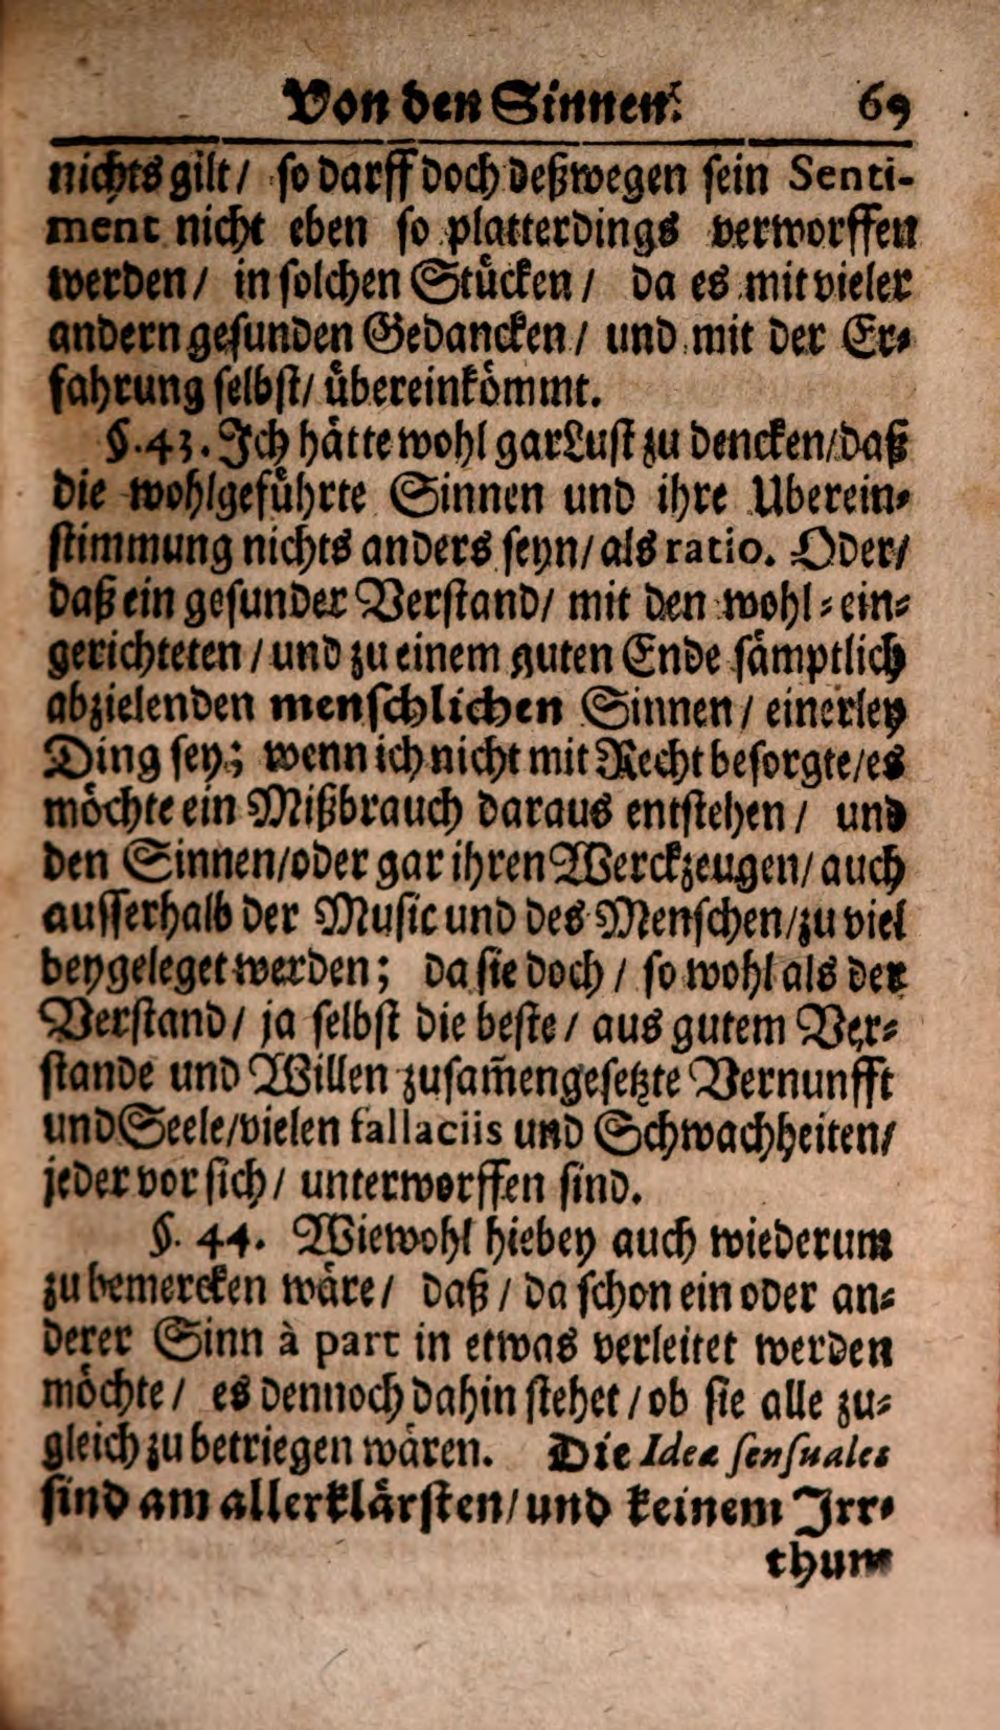 Von den Sinnen. 69
nichts gilt/ so darff doch deßwegen sein Senti-
ment nicht eben so platterdings verworffen
werden/ in solchen Stücken/ da es mit vieler
andern gesunden Gedancken/ und mit der Er-
fahrung selbst/ übereinkömmt.
§. 43. Ich hätte wohl gar Lust zu dencken/ daß
die wohlgeführte Sinnen und ihre Uberein-
stimmung nichts anders seyn/ als ratio. Oder/
daß ein gesunder Verstand/ mit den wohl-ein-
gerichteten/ und zu einem guten Ende sämptlich
abzielenden menschlichen Sinnen/ einerley
Ding sey; wenn ich nicht mit Recht besorgte/ es
möchte ein Mißbrauch daraus entstehen/ und
den Sinnen/ oder gar ihren Werckzeugen/ auch
ausserhalb der Music und des Menschen/ zu viel
beygeleget werden; da sie doch/ so wohl als der
Verstand/ ja selbst die beste/ aus gutem Ver-
stande und Willen zusam̃engesetzte Vernunfft
und Seele/ vielen fallaciis und Schwachheiten/
jeder vor sich/ unterworffen sind.
§. 44. Wiewohl hiebey auch wiederum
zu bemercken wäre/ daß/ da schon ein oder an-
derer Sinn à part in etwas verleitet werden
möchte/ es dennoch dahin stehet/ ob sie alle zu-
gleich zu betriegen wären. Die Ideæ sensuales
sind am allerklärsten/ und keinem Irr-
thum